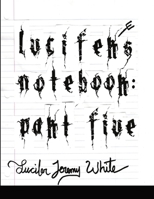 lucifers
notebook:
part five
Lucifer Jeremy White